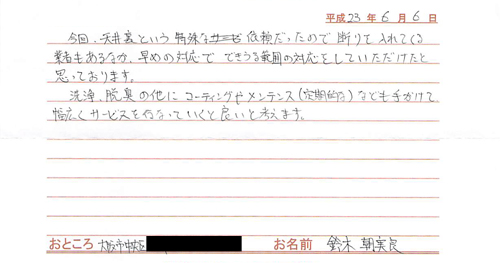 平成23年6月6日
今回、天井裏という特殊な依頼だったので断りを入れてくる
業者もあるなか、早めの対応で できうる範囲の対応をしていただけたと
思っております。
洗浄、脱臭の他にコーティングやメンテンス(定期的な)なども手がけて
幅広くサービスを行なっていくと良いと考えます。
おところ 大阪市中央区 お名前 鈴木 朝実良